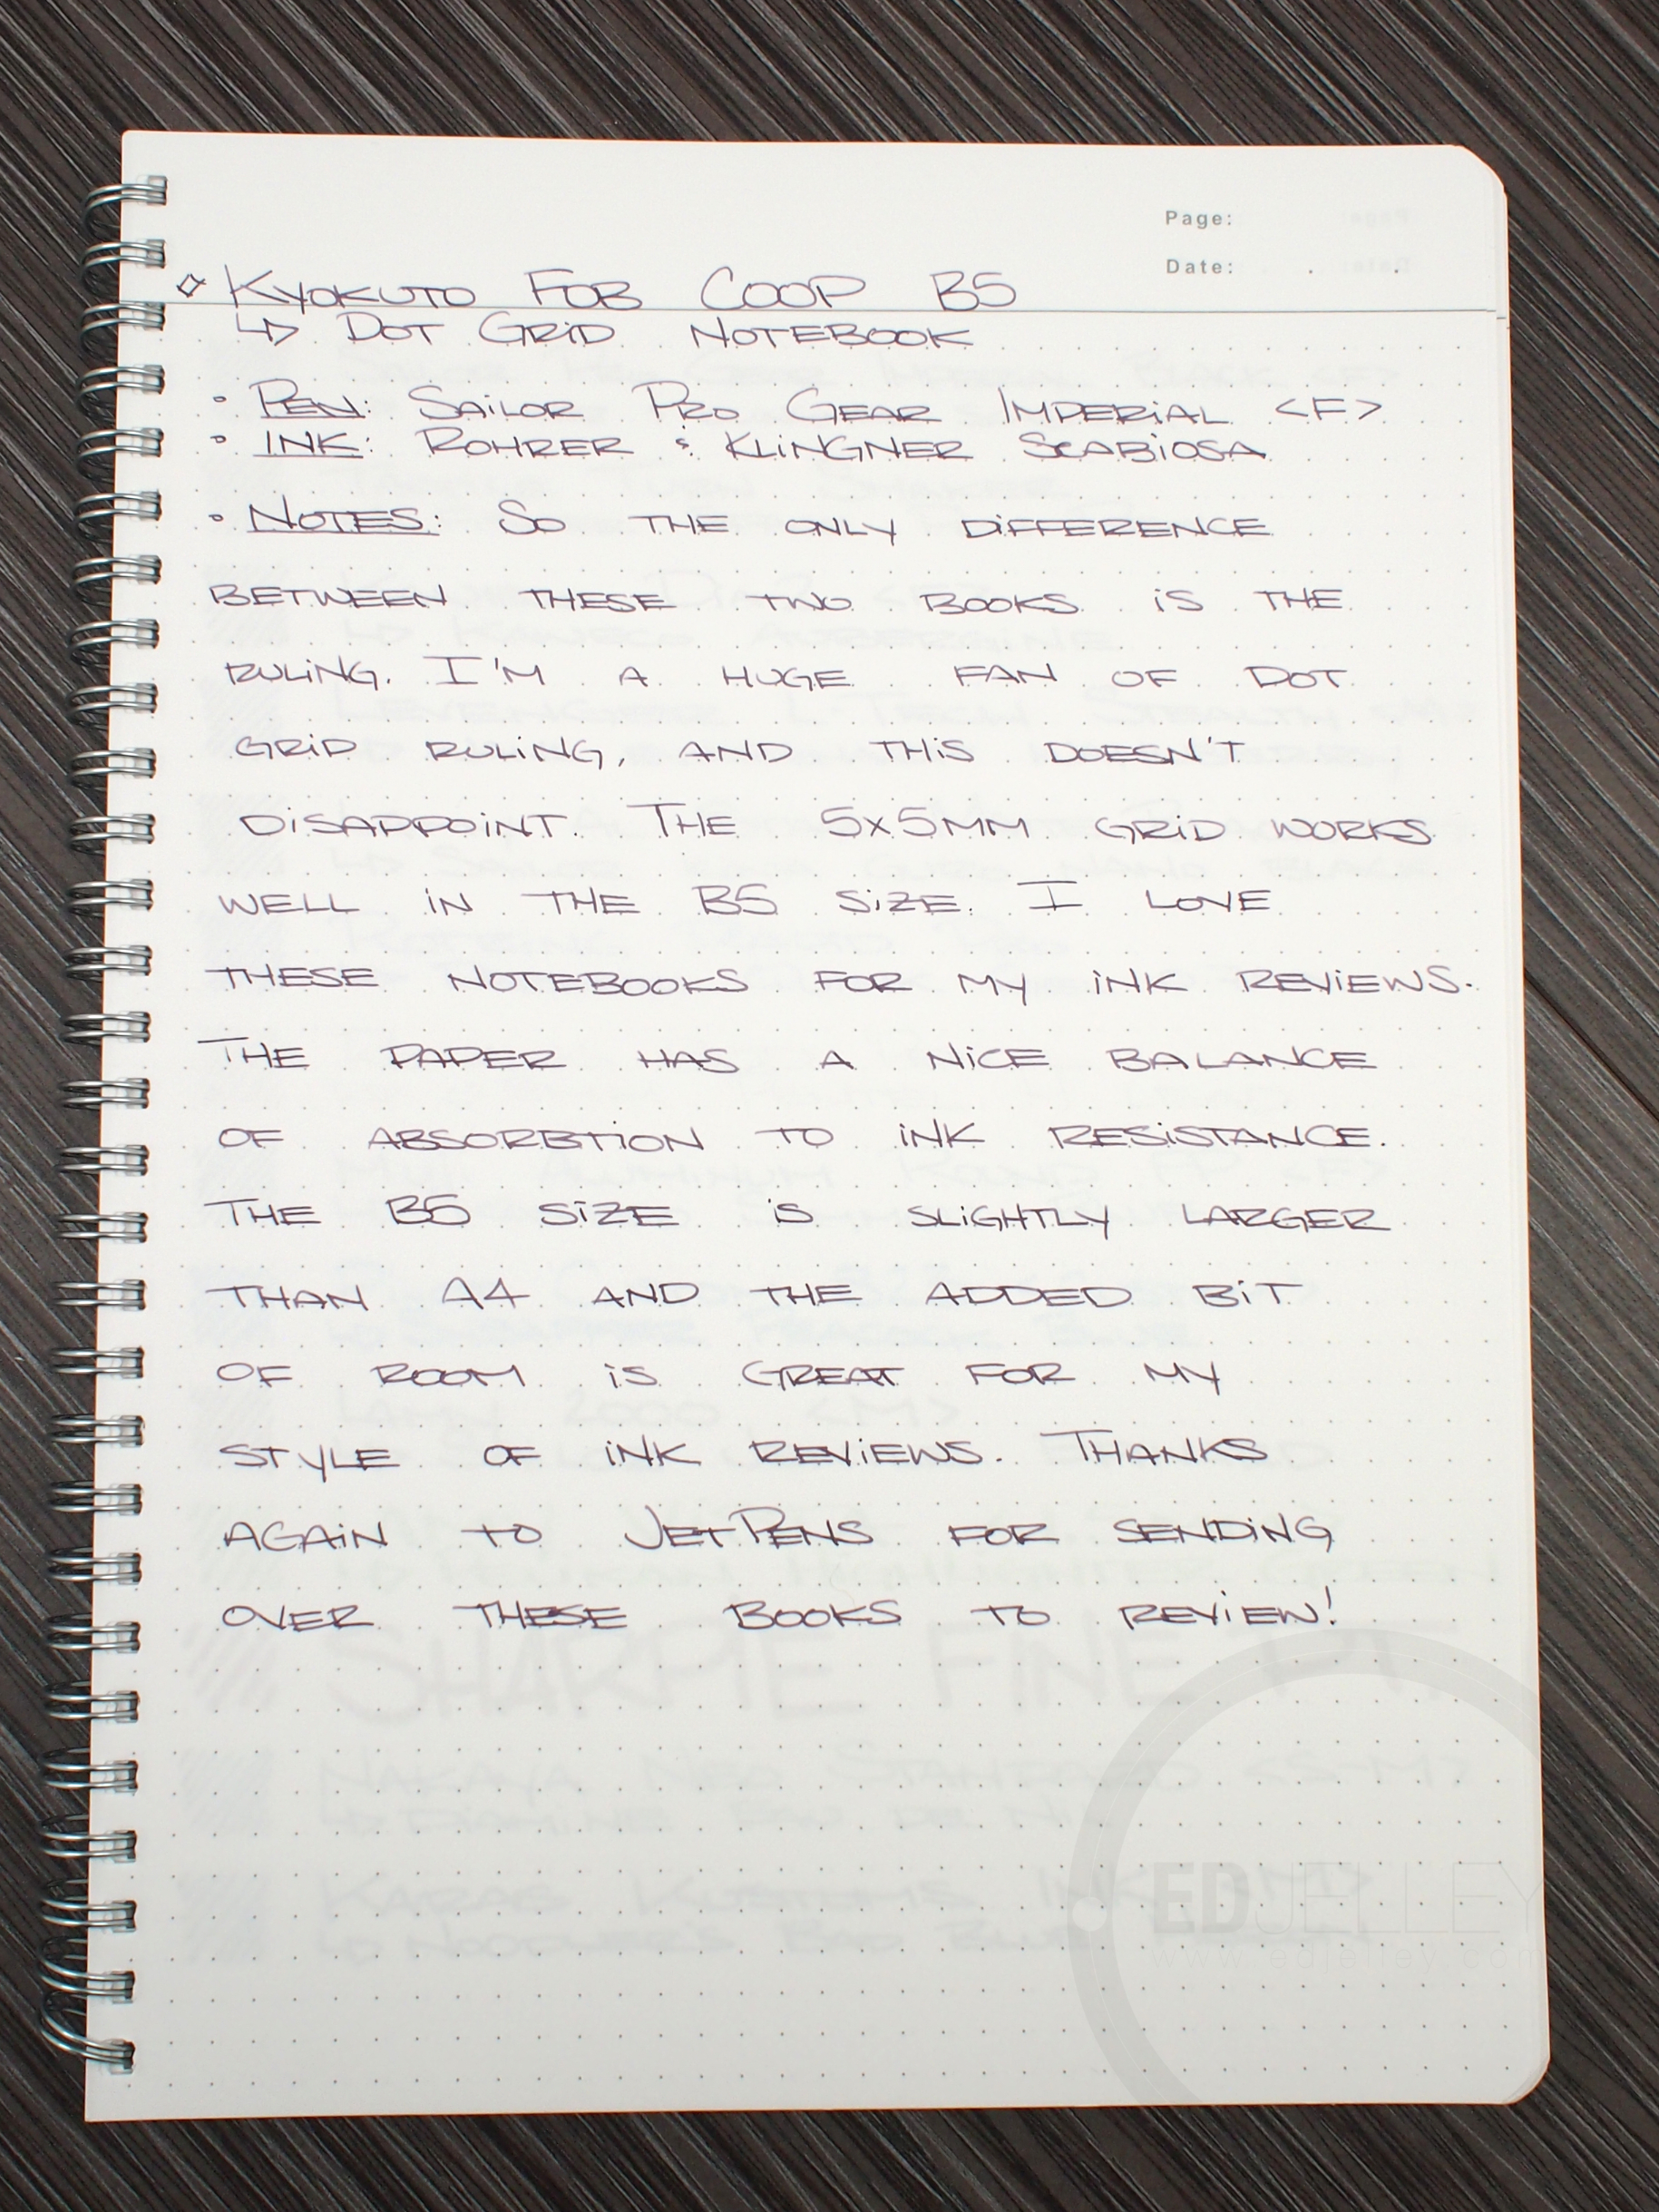 Page:
Date: . .
◇ KYOKUTO FOB COOP B5
↳ DOT GRID NOTEBOOK
• PEN: SAILOR PRO GEAR IMPERIAL <F>
• INK: ROHRER & KLINGNER SCABIOSA
• NOTES: SO THE ONLY DIFFERENCE
BETWEEN THESE TWO BOOKS IS THE
RULING. I'M A HUGE FAN OF DOT
GRID RULING, AND THIS DOESN'T
DISAPPOINT. THE 5x5MM GRID WORKS
WELL IN THE B5 SIZE. I LOVE
THESE NOTEBOOKS FOR MY INK REVIEWS.
THE PAPER HAS A NICE BALANCE
OF ABSORBTION TO INK RESISTANCE.
THE B5 SIZE IS SLIGHTLY LARGER
THAN A4 AND THE ADDED BIT
OF ROOM IS GREAT FOR MY
STYLE OF INK REVIEWS. THANKS
AGAIN TO JETPENS FOR SENDING
OVER THESE BOOKS TO REVIEW!
SHARPIE FINE PT.
NAKAYA NEO STANDARD <S-M>
KARAS KUSTOMS INK <M>
EDJELLEY
www.edjelley.com